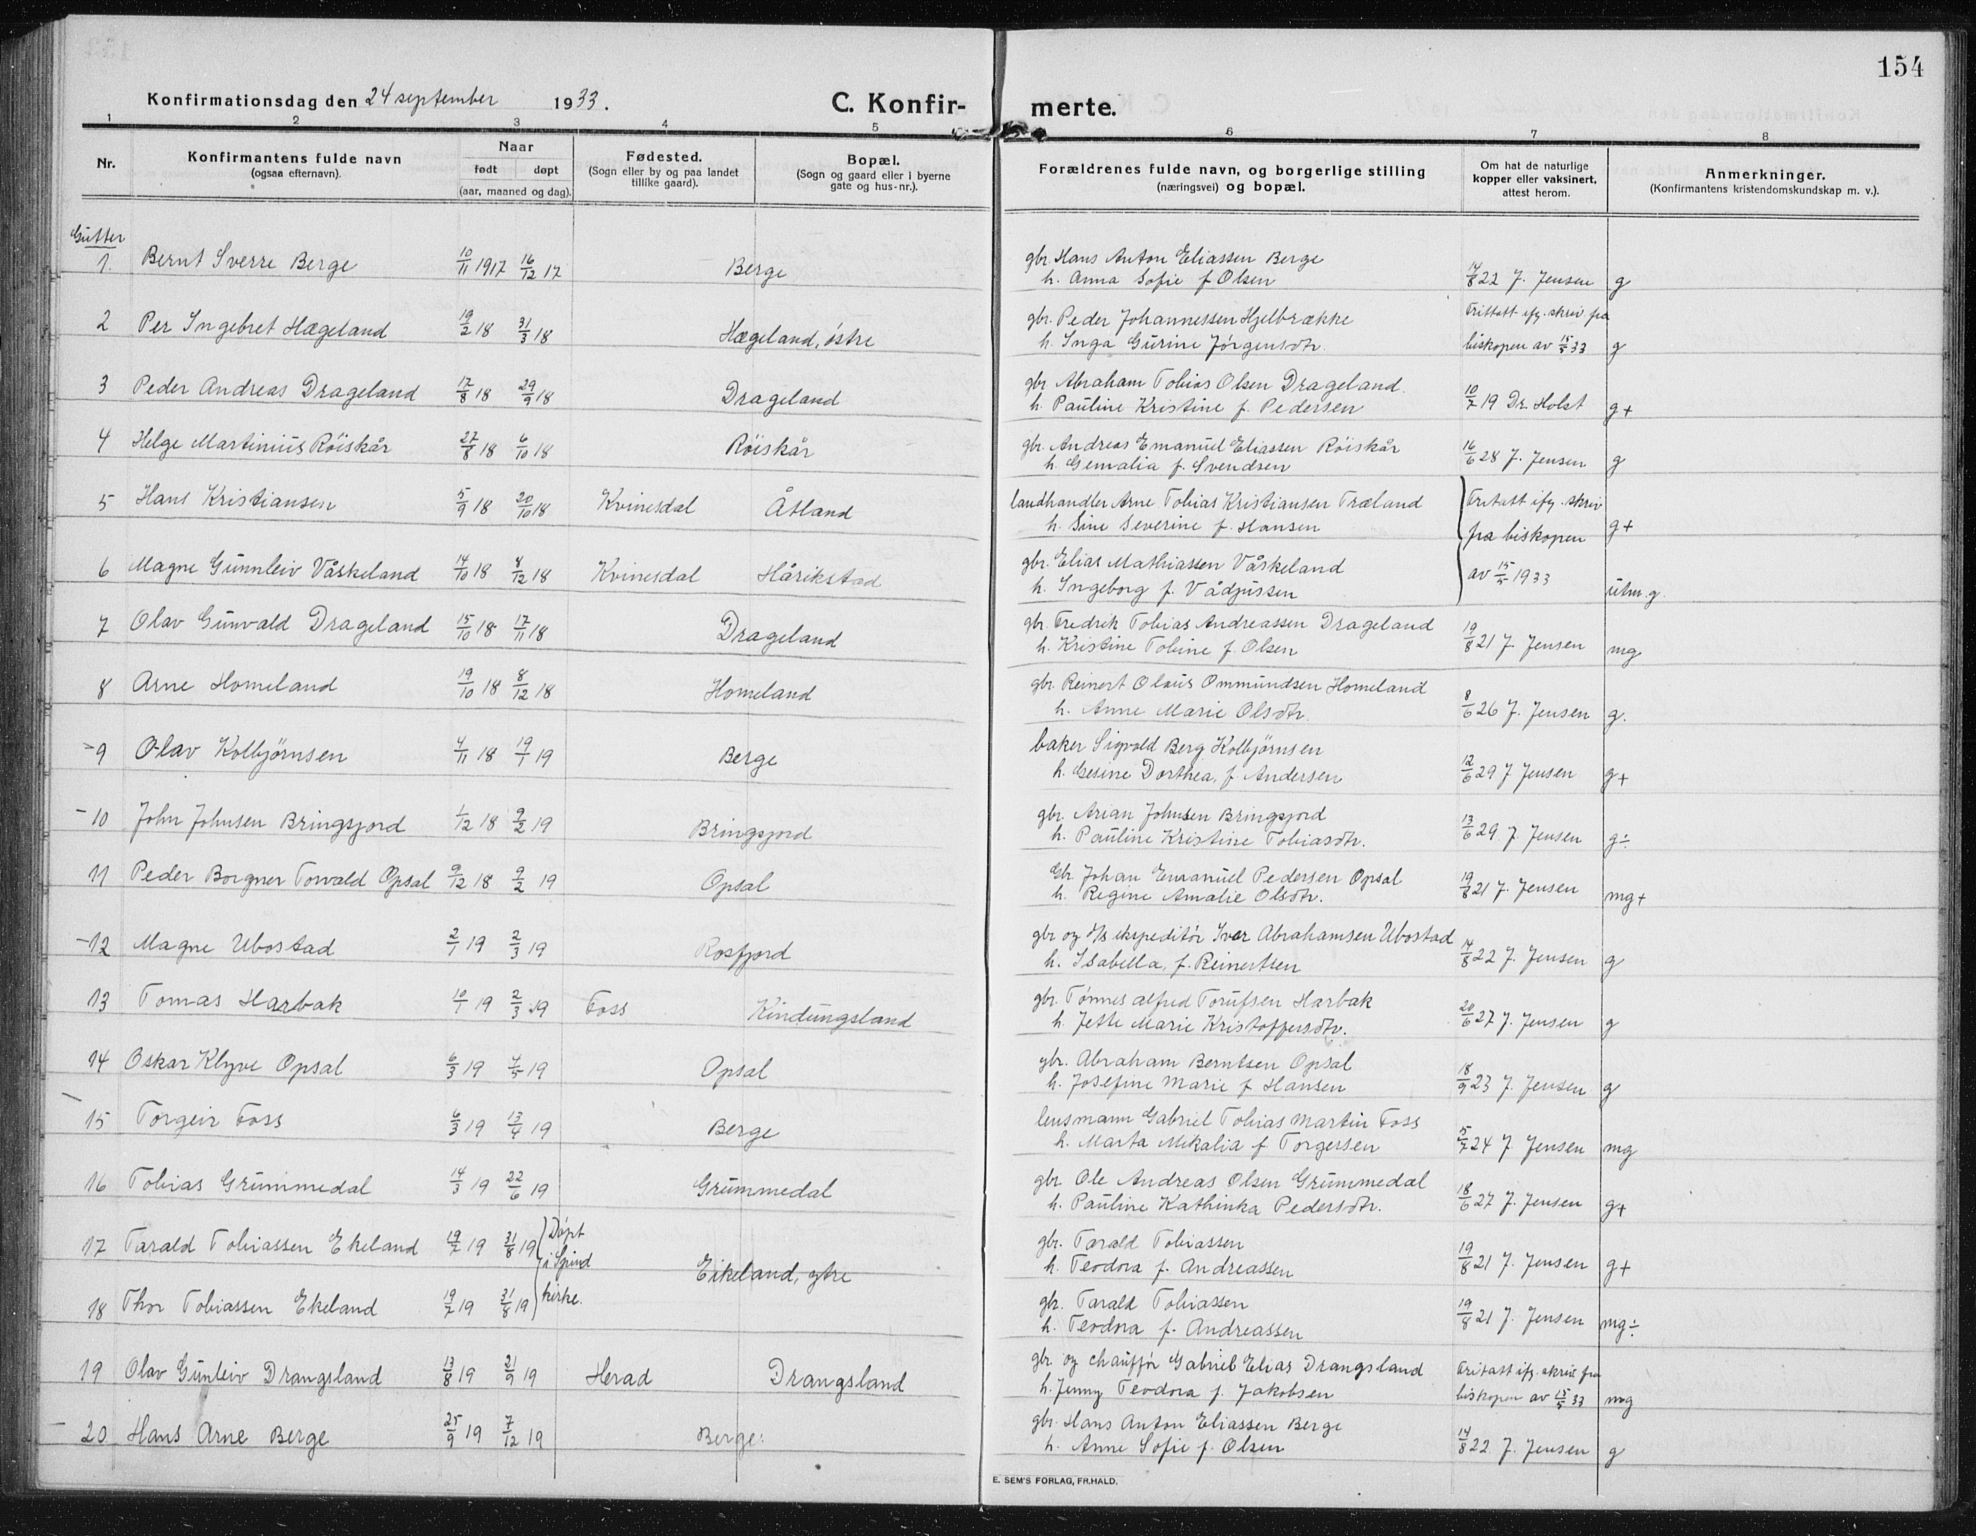 154
Konfirmationsdag den 24 september 1933.
C. Konfirmerte.
1 2 3 4 5 6 7 8
Nr.
Konfirmantens fulde navn
(ogsaa efternavn).
Naar
født døpt
(aar, maaned og dag).
Fødested.
(Sogn eller by og paa landet
tillike gaard).
Bopæl.
(Sogn og gaard eller i byerne
gate og hus-nr.).
Forældrenes fulde navn, og borgerlige stilling
(næringsvei) og bopæl.
Om hat de naturlige
kopper eller vaksinert,
attest herom.
Anmerkninger.
(Konfirmantens kristendomskundskap m. v.).
Gutter
1. Bernt Sverre Berge 10/11 1917 16/12 17 Berge
gbr Hans Anton Eliassen Berge
h. Anna Sofie f Olsen 14/8 22 J. Jensen g
2 Per Ingebret Hægeland 19/2 18 31/3 18 Hægeland, østre
gbr. Peder Johannessen Hjelbrække Frittatt ifg. skriv fra
h. Inga Gurine Jørgensdtr. biskopen av 15/5 33 g
3 Peder Andreas Drageland 17/8 18 29/9 18 Drageland
gbr Abraham Tobias Olsen Drageland.
h. Pauline Kristine f. Pedersen 10/7 19 Dr. Holst g+
4 Helge Martinius Røiskår 27/8 18 6/10 18 Røiskår
gbr. Andreas Emanuel Eliassen Røiskår
h. Gemalia f. Svendsen 16/6 28 J. Jensen g
5 Hans Kristiansen 5/9 18 20/10 18 Kvinesdal Åtland
landhandler Arne Tobias Kristiansen Træland Fritatt ifg. skriv
h. Sine Severine f. Hansen fra biskopen g+
6 Magne Gunnleiv Våskeland 14/10 18 8/12 18 Kvinesdal Hårikstad
gbr. Elias Mathiassen Våskeland av 15/5 1933
h. Ingeborg f. Vådjussen utm. g.
7 Olav Gunvald Drageland 15/10 18 17/11 18 Drageland
gbr. Fredrik Tobias Andreassen Drageland
h. Kristine Tobine f. Olsen 19/8 21 J. Jensen mg
8 Arne Homeland 19/10 18 8/12 18 Homeland
gbr. Reinert Olaus Ommundsen Homeland
h. Anne Marie Olsdtr. 8/6 26 J. Jensen g.
9 Olav Kolbjørnsen 4/11 18 19/1 19 Berge
baker Sigvald Berg Kolbjørnsen
h. Gesine Dorthea, f. Andersen 12/6 29 J Jensen g+
10 John Johnsen Bringsjord 1/12 18 9/2 19 Bringsjord
gbr. Arian Johnsen Bringsjord
h. Pauline Kristine Tobiasdtr. 13/6 29. J. Jensen g÷
11 Peder Borgner Torvald Opsal 9/12 18 9/2 19 Opsal
Gbr Johan Emanuel Pedersen Opsal
h. Regine Amalie Olsdtr. 19/8 21 J. Jensen mg+
12 Magne Ubostad 2/1 19 2/3 19 Rosfjord
gbr og d/s ekspeditør Iver Abrahamsen Ubostad
h. Isabella, f. Reinertsen 14/8 22 J. Jensen g
13 Tomas Harbak 10/1 19 2/3 19 Foss Kindungsland
gbr. Tønnes Alfred Torufsen Harbak
h. Jette Marie Kristoffersdtr. 20/6 27 J. Jensen g
14 Oskar Klyve Opsal 6/3 19 4/5 19 Opsal
gbr. Abraham Berntsen Opsal
h. Josefine Marie f. Hansen 18/9 23 J. Jensen g
15 Torgeir Foss 6/3 19 13/4 19 Berge
lensmann Gabriel Tobias Martin Foss
h. Marta Mikalia f Torgersen 5/7 24 J Jensen mg
16 Tobias Grummedal 14/3 19 22/6 19 Grummedal
gbr Ole Andreas Olsen Grummedal
h. Pauline Kathinka Pedersdtr. 18/6 27 J. Jensen g+
17 Tarald Tobiassen Ekeland 19/7 19 31/8 19 Døpt i Spind kirke. Eikeland, ytre
gbr. Tarald Tobiassen
h. Teodora f. Andreassen 19/8 21 J. Jensen g+
18 Thor Tobiassen Ekeland 19/7 19 31/8 19
gbr. Tarald Tobiassen
h. Teodora f. Andreassen 19/8 21 J. Jensen mg÷
19 Olav Gunleiv Drangsland 13/8 19 21/9 19 Herad Drangsland
gbr og chauffør Gabriel Elias Drangsland Fritatt ifg. skriv fra
h. Jenny Teodora f. Jakobsen biskopen av 15/5 33 mg
20 Hans Arne Berge 25/9 19 7/12 19 Berge.
gbr. Hans Anton Eliassen Berge
h. Anne Sofie f. Olsen 14/8 22 J. Jensen g
E. SEM'S FORLAG, FR.HALD.